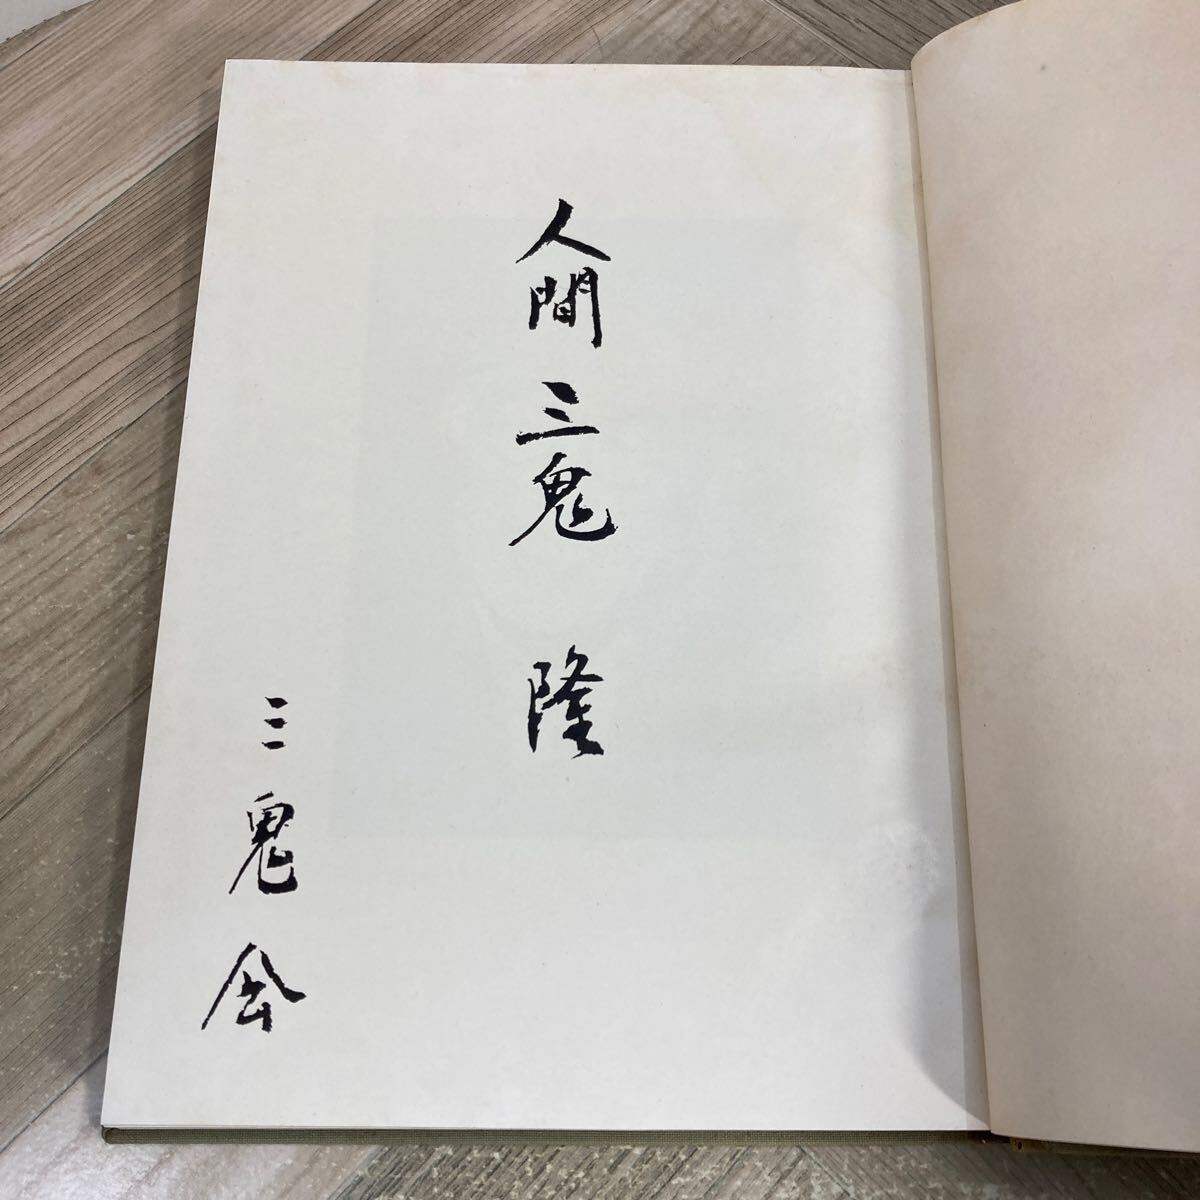 人間 三鬼 隆
三鬼会